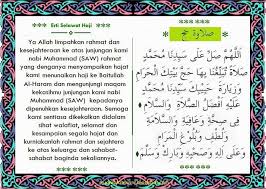 Erti Selawat Haji
Ya Allah limpahkan rahmat dan
kesejahteraan ke atas junjungan kami
nabi Muhammad (SAW) rahmat
yang dengannya menyampaikan hajat
kami menunaikan haji ke Baitullah
Al-Haram dan mengunjungi maqam
kekasihmu junjungan kami nabi
Muhammad (SAW) kepadanya
dipenuhkan kesejahteraan. Semoga
kami sentiasa dikekalkan didalam
sihat walafiat, selamat dan
kesampaian segala hajat dan
kurniakanlah rahmat dan sejahtera
ke atas keluarga dan sahabat-
sahabat baginda sekaliannya.
صلاوة حج
اَللّٰهُمَّ صَلِّ عَلَى سَيِّدِنَا مُحَمَّدٍ
صَلَاةً تُبَلِّغُنَا بِهَا حَجَّ بَيْتِكَ الْحَرَامِ
وَزِيَارَةَ حَبِيبِكَ سَيِّدِنَا مُحَمَّدٍ
عَلَيْهِ أَفْضَلُ الصَّلَاةِ وَالسَّلَامِ
فِي صِحَّةٍ وَعَافِيَةٍ وَسَلَامَةٍ
وَلُطْفٍ وَبُلُوغِ الْمَرَامِ
وَعَلَى آلِهِ وَصَحْبِهِ وَبَارِكْ وَسَلِّمْ